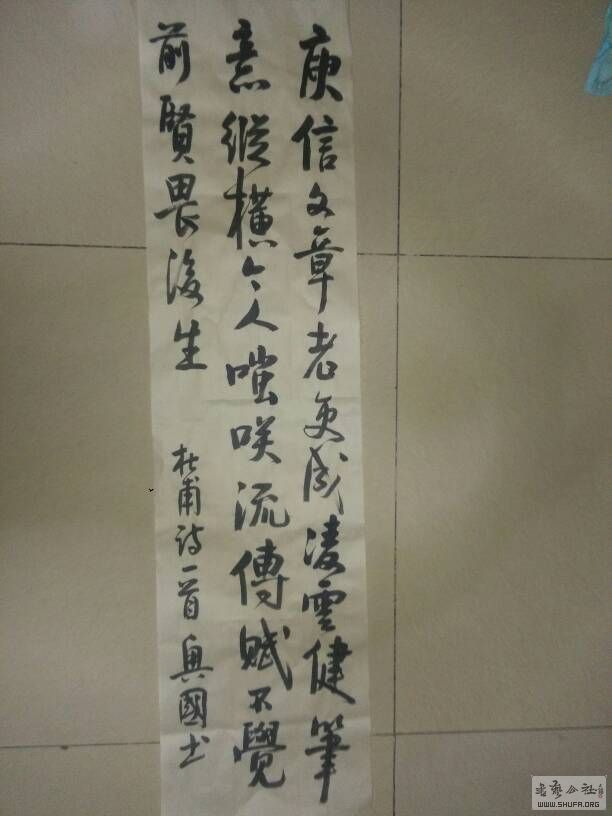 庾信文章老更成凌雲健筆
意縱橫今人嗤咲流傳賦不覺
前賢畏後生
杜甫詩一首興國书
書藝公社
WWW.SHUFA.ORG